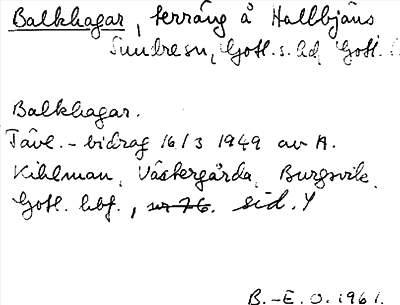 Balkhagar, terräng å Hallbjäns
Sundresn, Gotl. s. hd, Gotl. l.
Balkhagar.
Tävl.-bidrag 16/3 1949 av A.
Kihlman, Västergårda, Burgsvik,
Gotl. hbf., nr 76. sid. 4
B.-E. O. 1961.